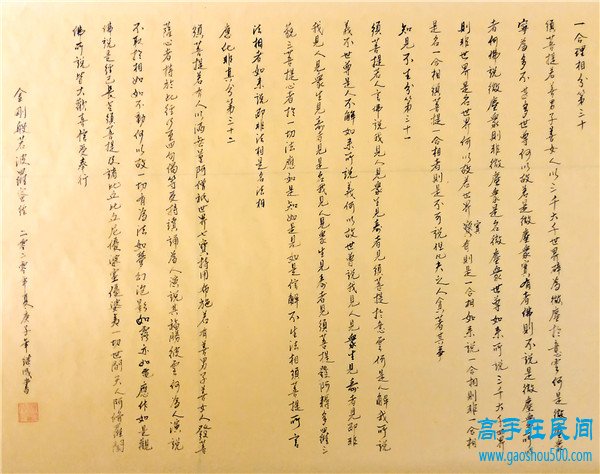 一合理相分第三十
須菩提若善男子善女人以三千大千世界碎為微塵於意云何是微塵眾
寧為多不甚多世尊何以故若是微塵眾實有者佛則不說是微塵眾所
者何佛說微塵眾則非微塵眾是名微塵眾世尊如來所說三千大千世界
則非世界是名世界何以故若世界實有則是一合相如來說一合相則非一合相
是名一合相須菩提一合相者則是不可說但凡夫之人貪著其事
知見不生分第三十一
須菩提若人言佛說我見人見眾生見壽者見須菩提於意云何是人解我所說
義不世尊是人不解如來所說義何以故世尊說我見人見眾生見壽者見即非
我見人見眾生見壽者見是名我見人見眾生見壽者見須菩提發阿耨多羅三
藐三菩提心者於一切法應如是知如是見如是信解不生法相須菩提所言
法相者如來說即非法相是名法相
應化非真分第三十二
須菩提若有人以滿無量阿僧祇世界七寶持用布施若有善男子善女人發菩
薩心者持於此經乃至四句偈等受持讀誦為人演說其福勝彼云何為人演說
不取於相如如不動何以故一切有為法如夢幻泡影如露亦如電應作如是觀
佛說是經已長老須菩提及諸比丘比丘尼優婆塞優婆夷一切世間天人阿修羅聞
佛所說皆大歡喜信受奉行
金剛般若波羅蜜經 二零二零年夏庚子年 書
高手在民间
www.gaoshou500.com